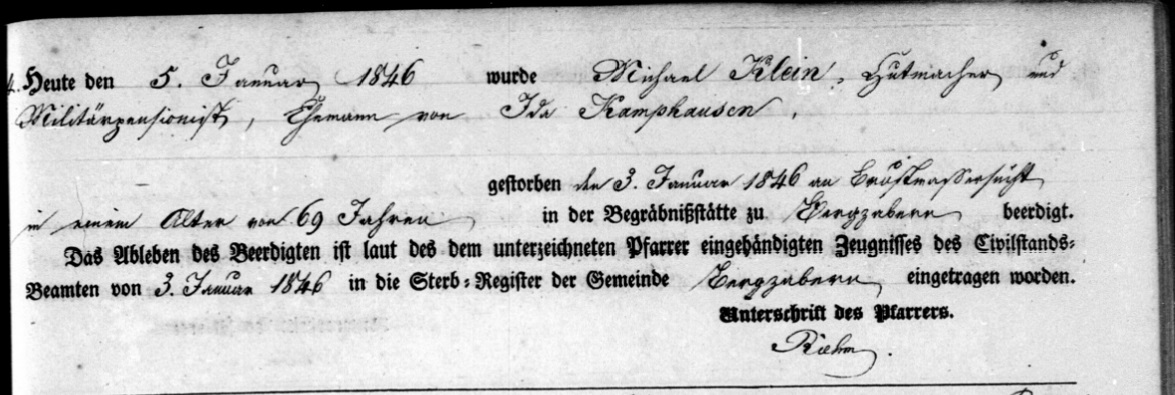 4. Heute den 5. Januar 1846 wurde Michael Klein, Hutmacher und
Militärpensionist, Ehemann von Ida Kamphausen,
gestorben den 3. Januar 1846 an Brustwassersucht
in einem Alter von 69 Jahren in der Begräbnißstätte zu Bergzabern beerdigt.
Das Ableben des Beerdigten ist laut des dem unterzeichneten Pfarrer eingehändigten Zeugnisses des Civilstands-
Beamten von 3. Januar 1846 in die Sterb-Register der Gemeinde Bergzabern eingetragen worden.
Unterschrift des Pfarrers.
Riehm.